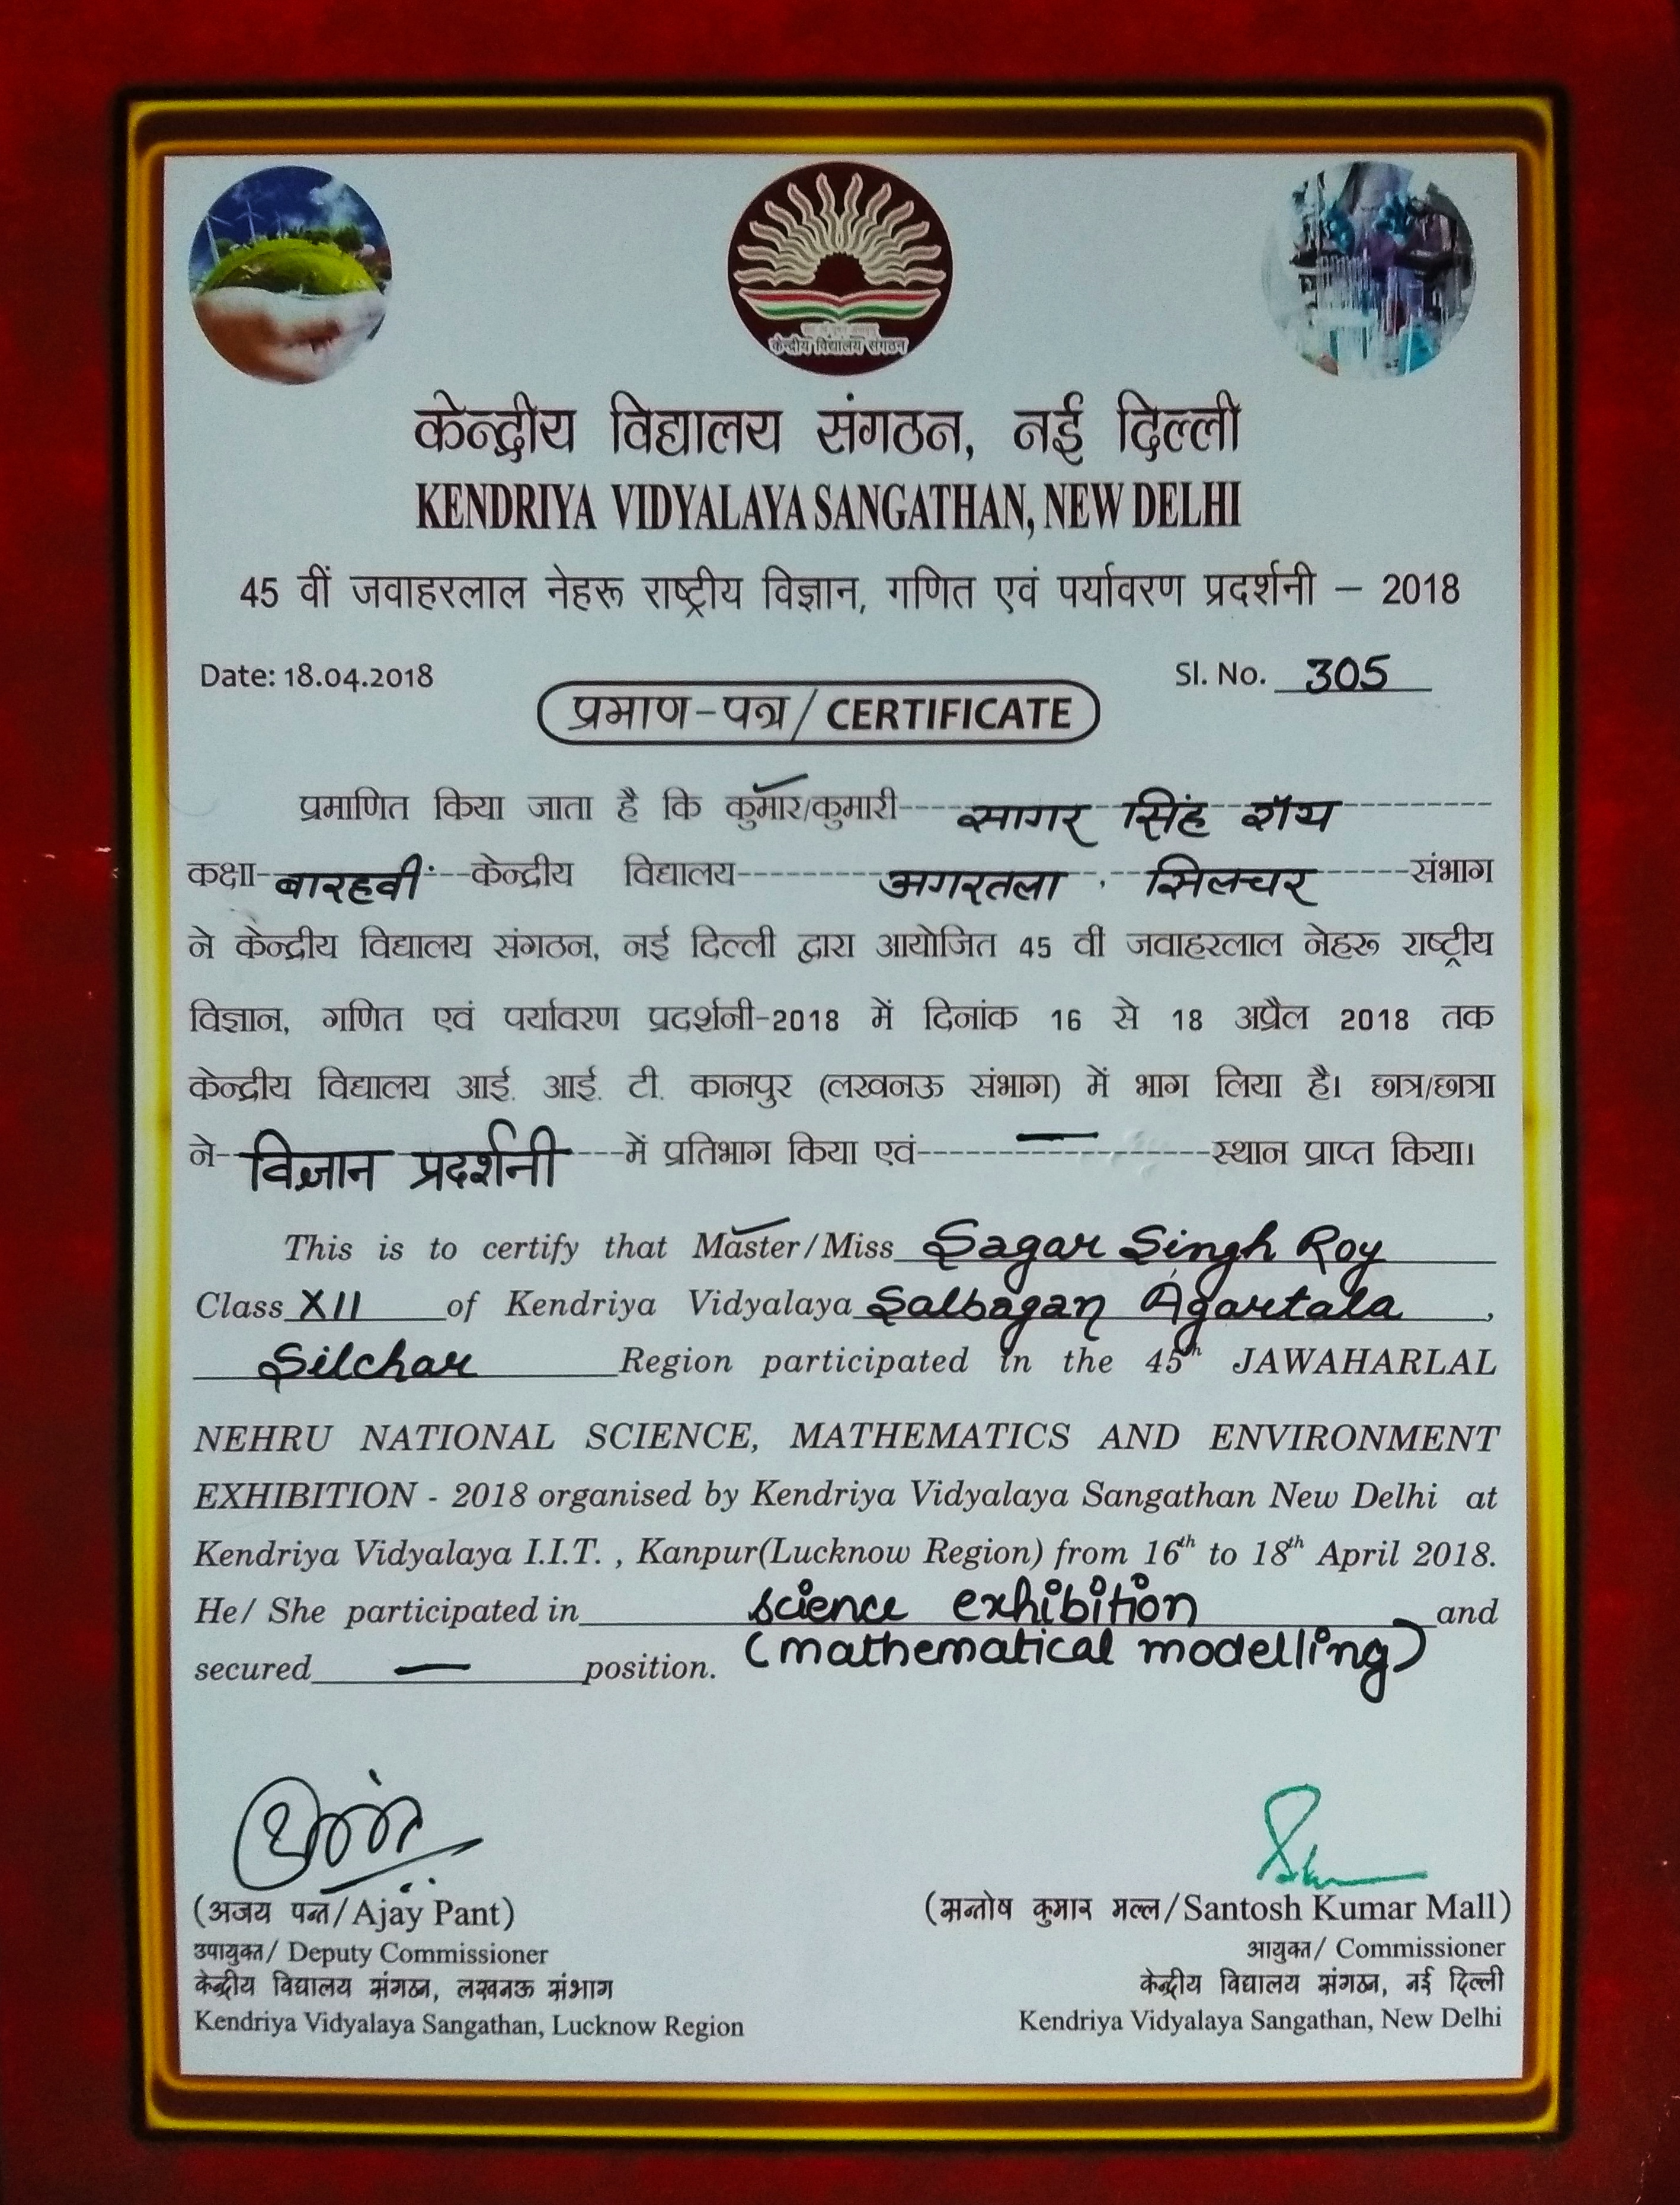 केन्द्रीय विद्यालय संगठन
केन्द्रीय विद्यालय संगठन, नई दिल्ली
KENDRIYA VIDYALAYA SANGATHAN, NEW DELHI
45 वीं जवाहरलाल नेहरू राष्ट्रीय विज्ञान, गणित एवं पर्यावरण प्रदर्शनी – 2018
Date: 18.04.2018 Sl. No. 305
प्रमाण-पत्र/ CERTIFICATE
प्रमाणित किया जाता है कि कुमार/कुमारी सागर सिंह रॉय
कक्षा बारहवीं केन्द्रीय विद्यालय अगरतला, सिलचर संभाग
ने केन्द्रीय विद्यालय संगठन, नई दिल्ली द्वारा आयोजित 45 वी जवाहरलाल नेहरू राष्ट्रीय
विज्ञान, गणित एवं पर्यावरण प्रदर्शनी-2018 में दिनांक 16 से 18 अप्रैल 2018 तक
केन्द्रीय विद्यालय आई. आई. टी. कानपुर (लखनऊ संभाग) में भाग लिया है। छात्र/छात्रा
ने विज्ञान प्रदर्शनी में प्रतिभाग किया एवं — स्थान प्राप्त किया।
This is to certify that Master/Miss Sagar Singh Roy
Class XII of Kendriya Vidyalaya Salbagan Agartala,
Silchar Region participated in the 45th JAWAHARLAL
NEHRU NATIONAL SCIENCE, MATHEMATICS AND ENVIRONMENT
EXHIBITION - 2018 organised by Kendriya Vidyalaya Sangathan New Delhi at
Kendriya Vidyalaya I.I.T. , Kanpur(Lucknow Region) from 16th to 18th April 2018.
He/ She participated in science exhibition and
secured — position. (mathematical modelling)
(अजय पन्त/Ajay Pant) (सन्तोष कुमार मल्ल/Santosh Kumar Mall)
उपायुक्त/ Deputy Commissioner आयुक्त/ Commissioner
केन्द्रीय विद्यालय संगठन, लखनऊ संभाग केन्द्रीय विद्यालय संगठन, नई दिल्ली
Kendriya Vidyalaya Sangathan, Lucknow Region Kendriya Vidyalaya Sangathan, New Delhi